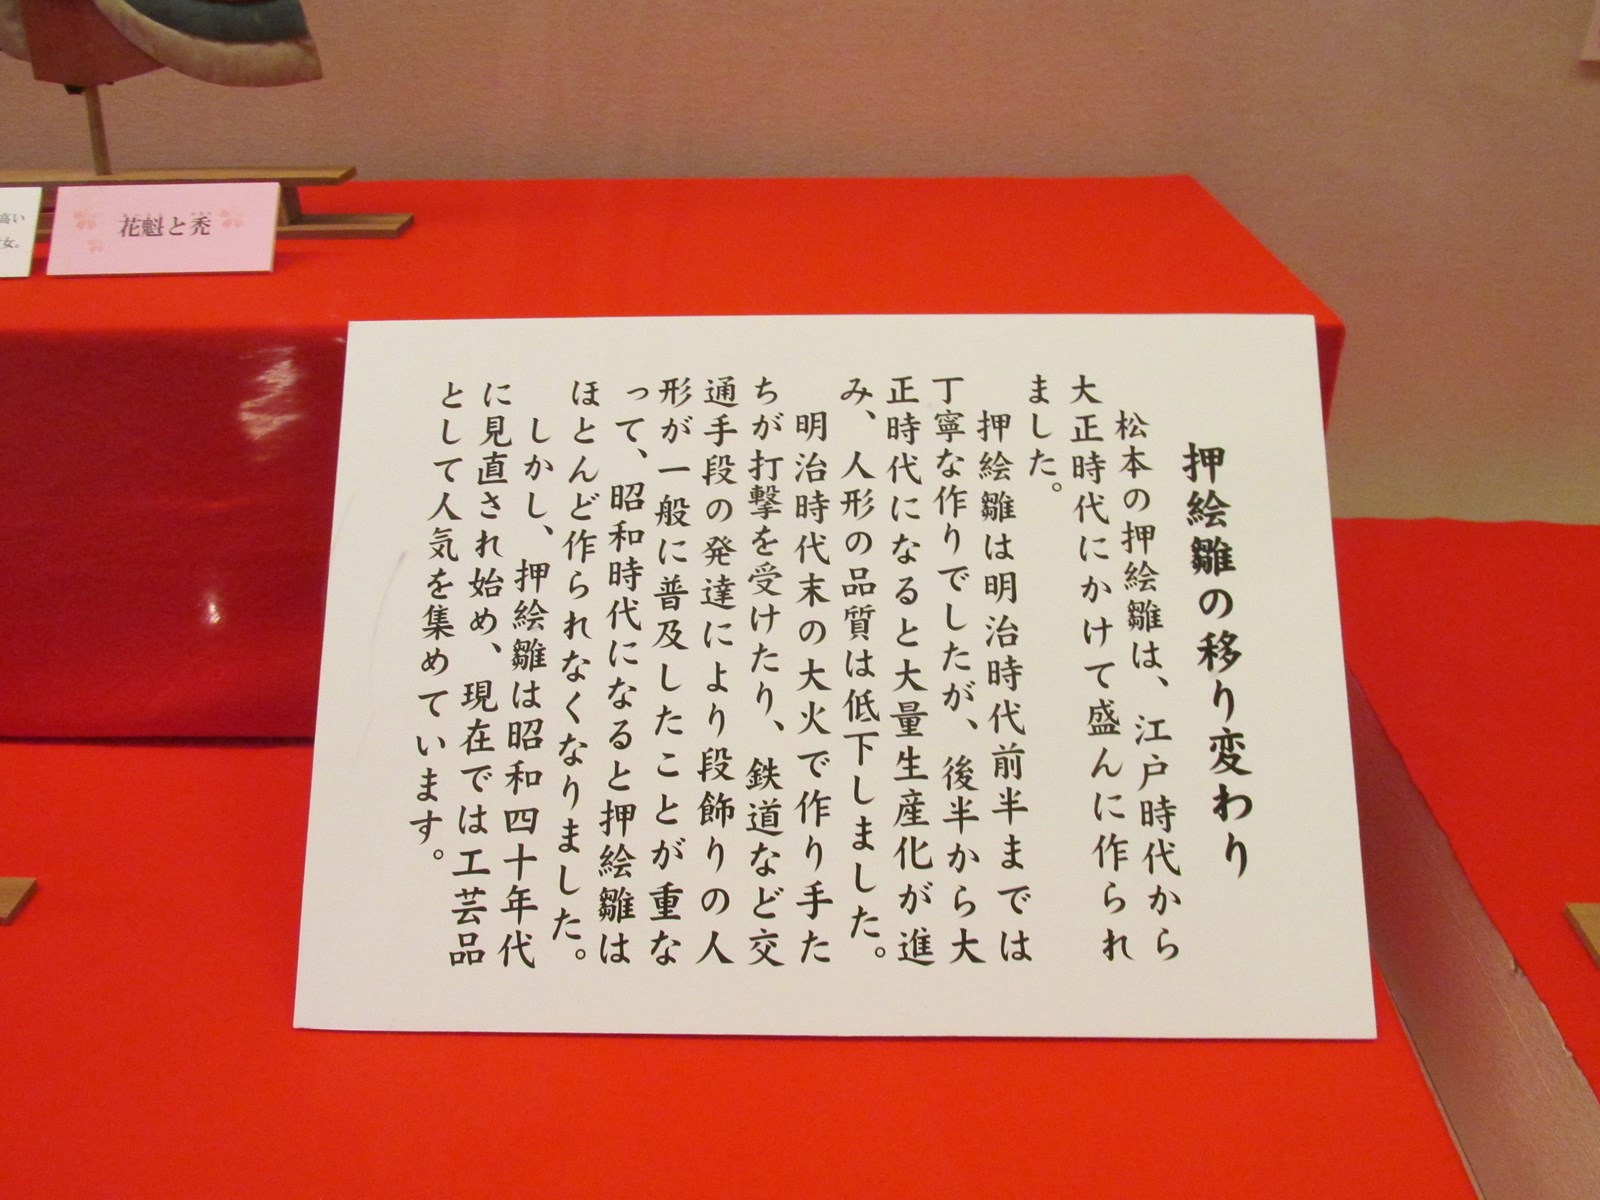 押絵雛の移り変わり
松本の押絵雛は、江戸時代から
大正時代にかけて盛んに作られ
ました。
押絵雛は明治時代前半までは
丁寧な作りでしたが、後半から大
正時代になると大量生産化が進
み、人形の品質は低下しました。
明治時代末の大火で作り手た
ちが打撃を受けたり、鉄道など交
通手段の発達により段飾りの人
形が一般に普及したことが重な
って、昭和時代になると押絵雛は
ほとんど作られなくなりました。
しかし、押絵雛は昭和四十年代
に見直され始め、現在では工芸品
として人気を集めています。
花魁と禿
高い
女。